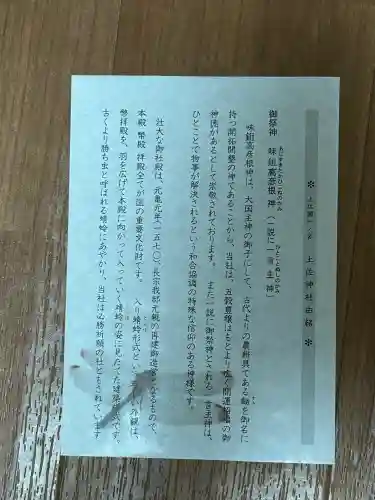 ✽ 土佐國一ノ宮 土佐神社由緒 ✽
御祭神 味鉏高彦根神（一説に一言主神）
あじすきたかひこねのかみ
ひとことぬしのかみ
味鉏高彦根神は、大国主神の御子にして、古代よりの農耕具である鋤を御名に
すき
持つ開拓開墾の神であることから、当社は、五穀豊穣はもとより広く開運招福の御
神徳があるとして崇敬されております。また一説に御祭神とされる一言主神は、
ひとことで物事が解決されるという和合協調の特殊な信仰のある神様です。
壮大な御社殿は、元亀元年（一五七〇）、長宗我部元親の再建御造営になるもので、
本殿 幣殿 拝殿全てが国の重要文化財です。入り蜻蛉形式といい、外観は、
とんぼ
幣拝殿を、羽を広げて本殿に向かって入っていく蜻蛉の姿に見たてた建築様式です。
古くより勝ち虫と呼ばれる蜻蛉にあやかり、当社は必勝祈願の社ともされています